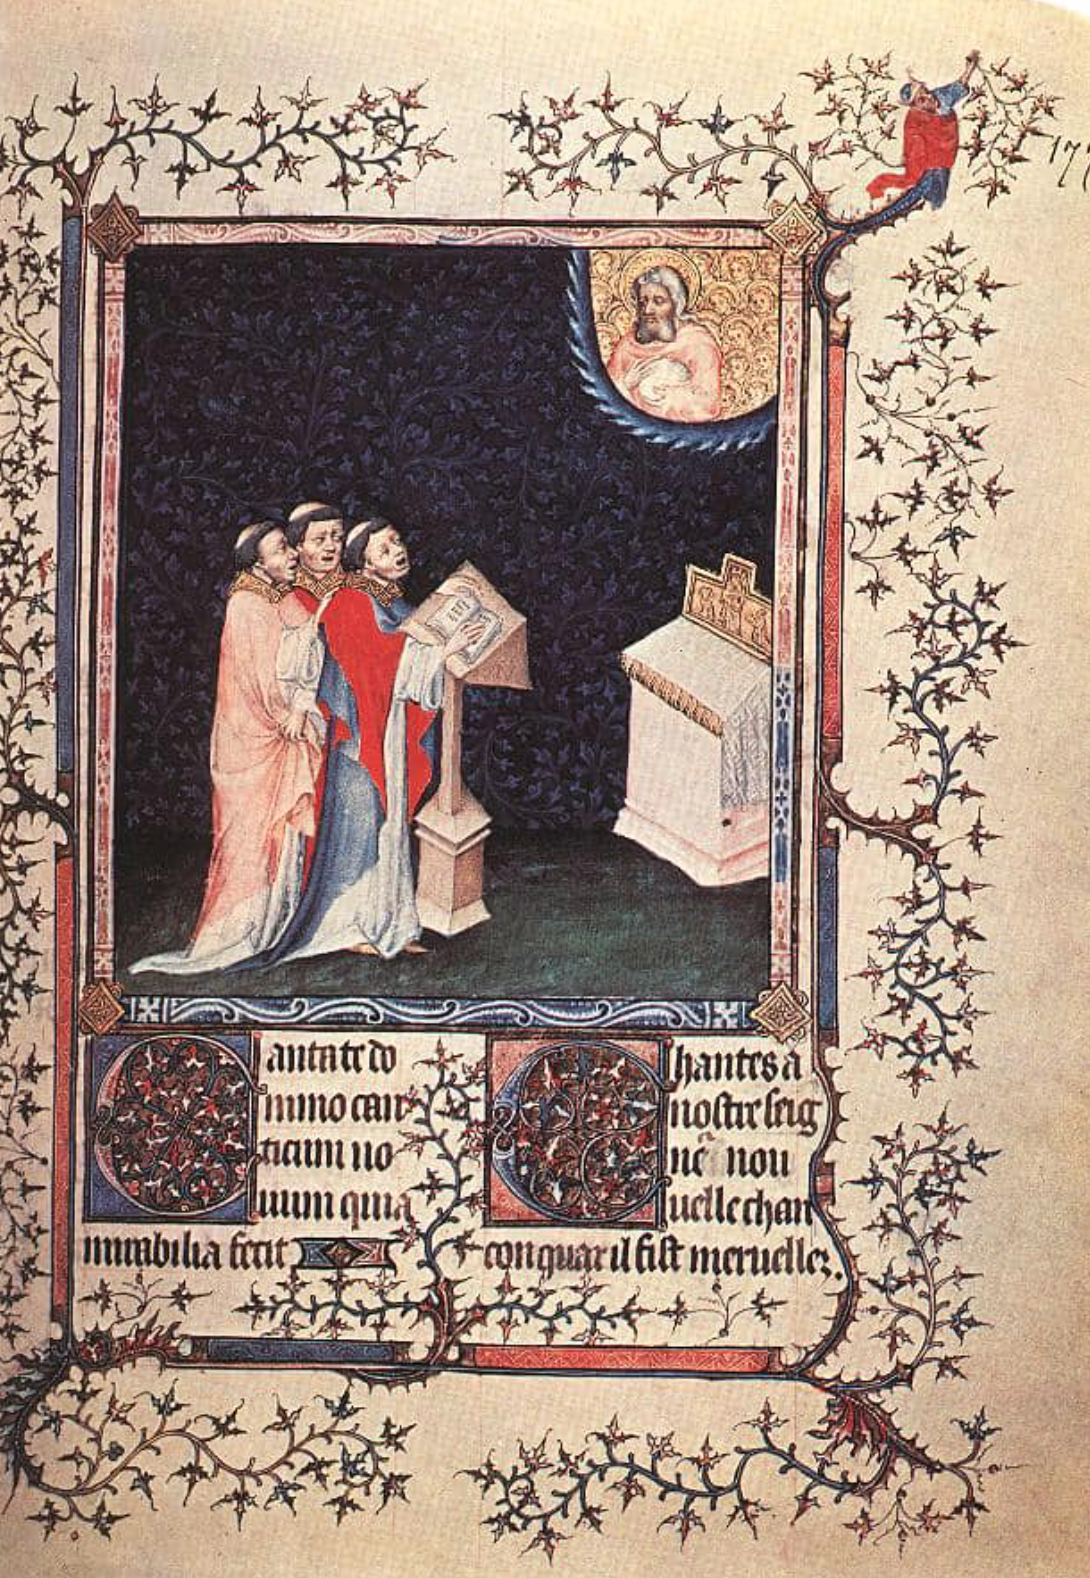 177
Cantate do
mino can
ticum no
uum quia
mirabilia fecit
Chantes a
nostre seig
ne nou
uelle chan
con quar il fist meruelles.